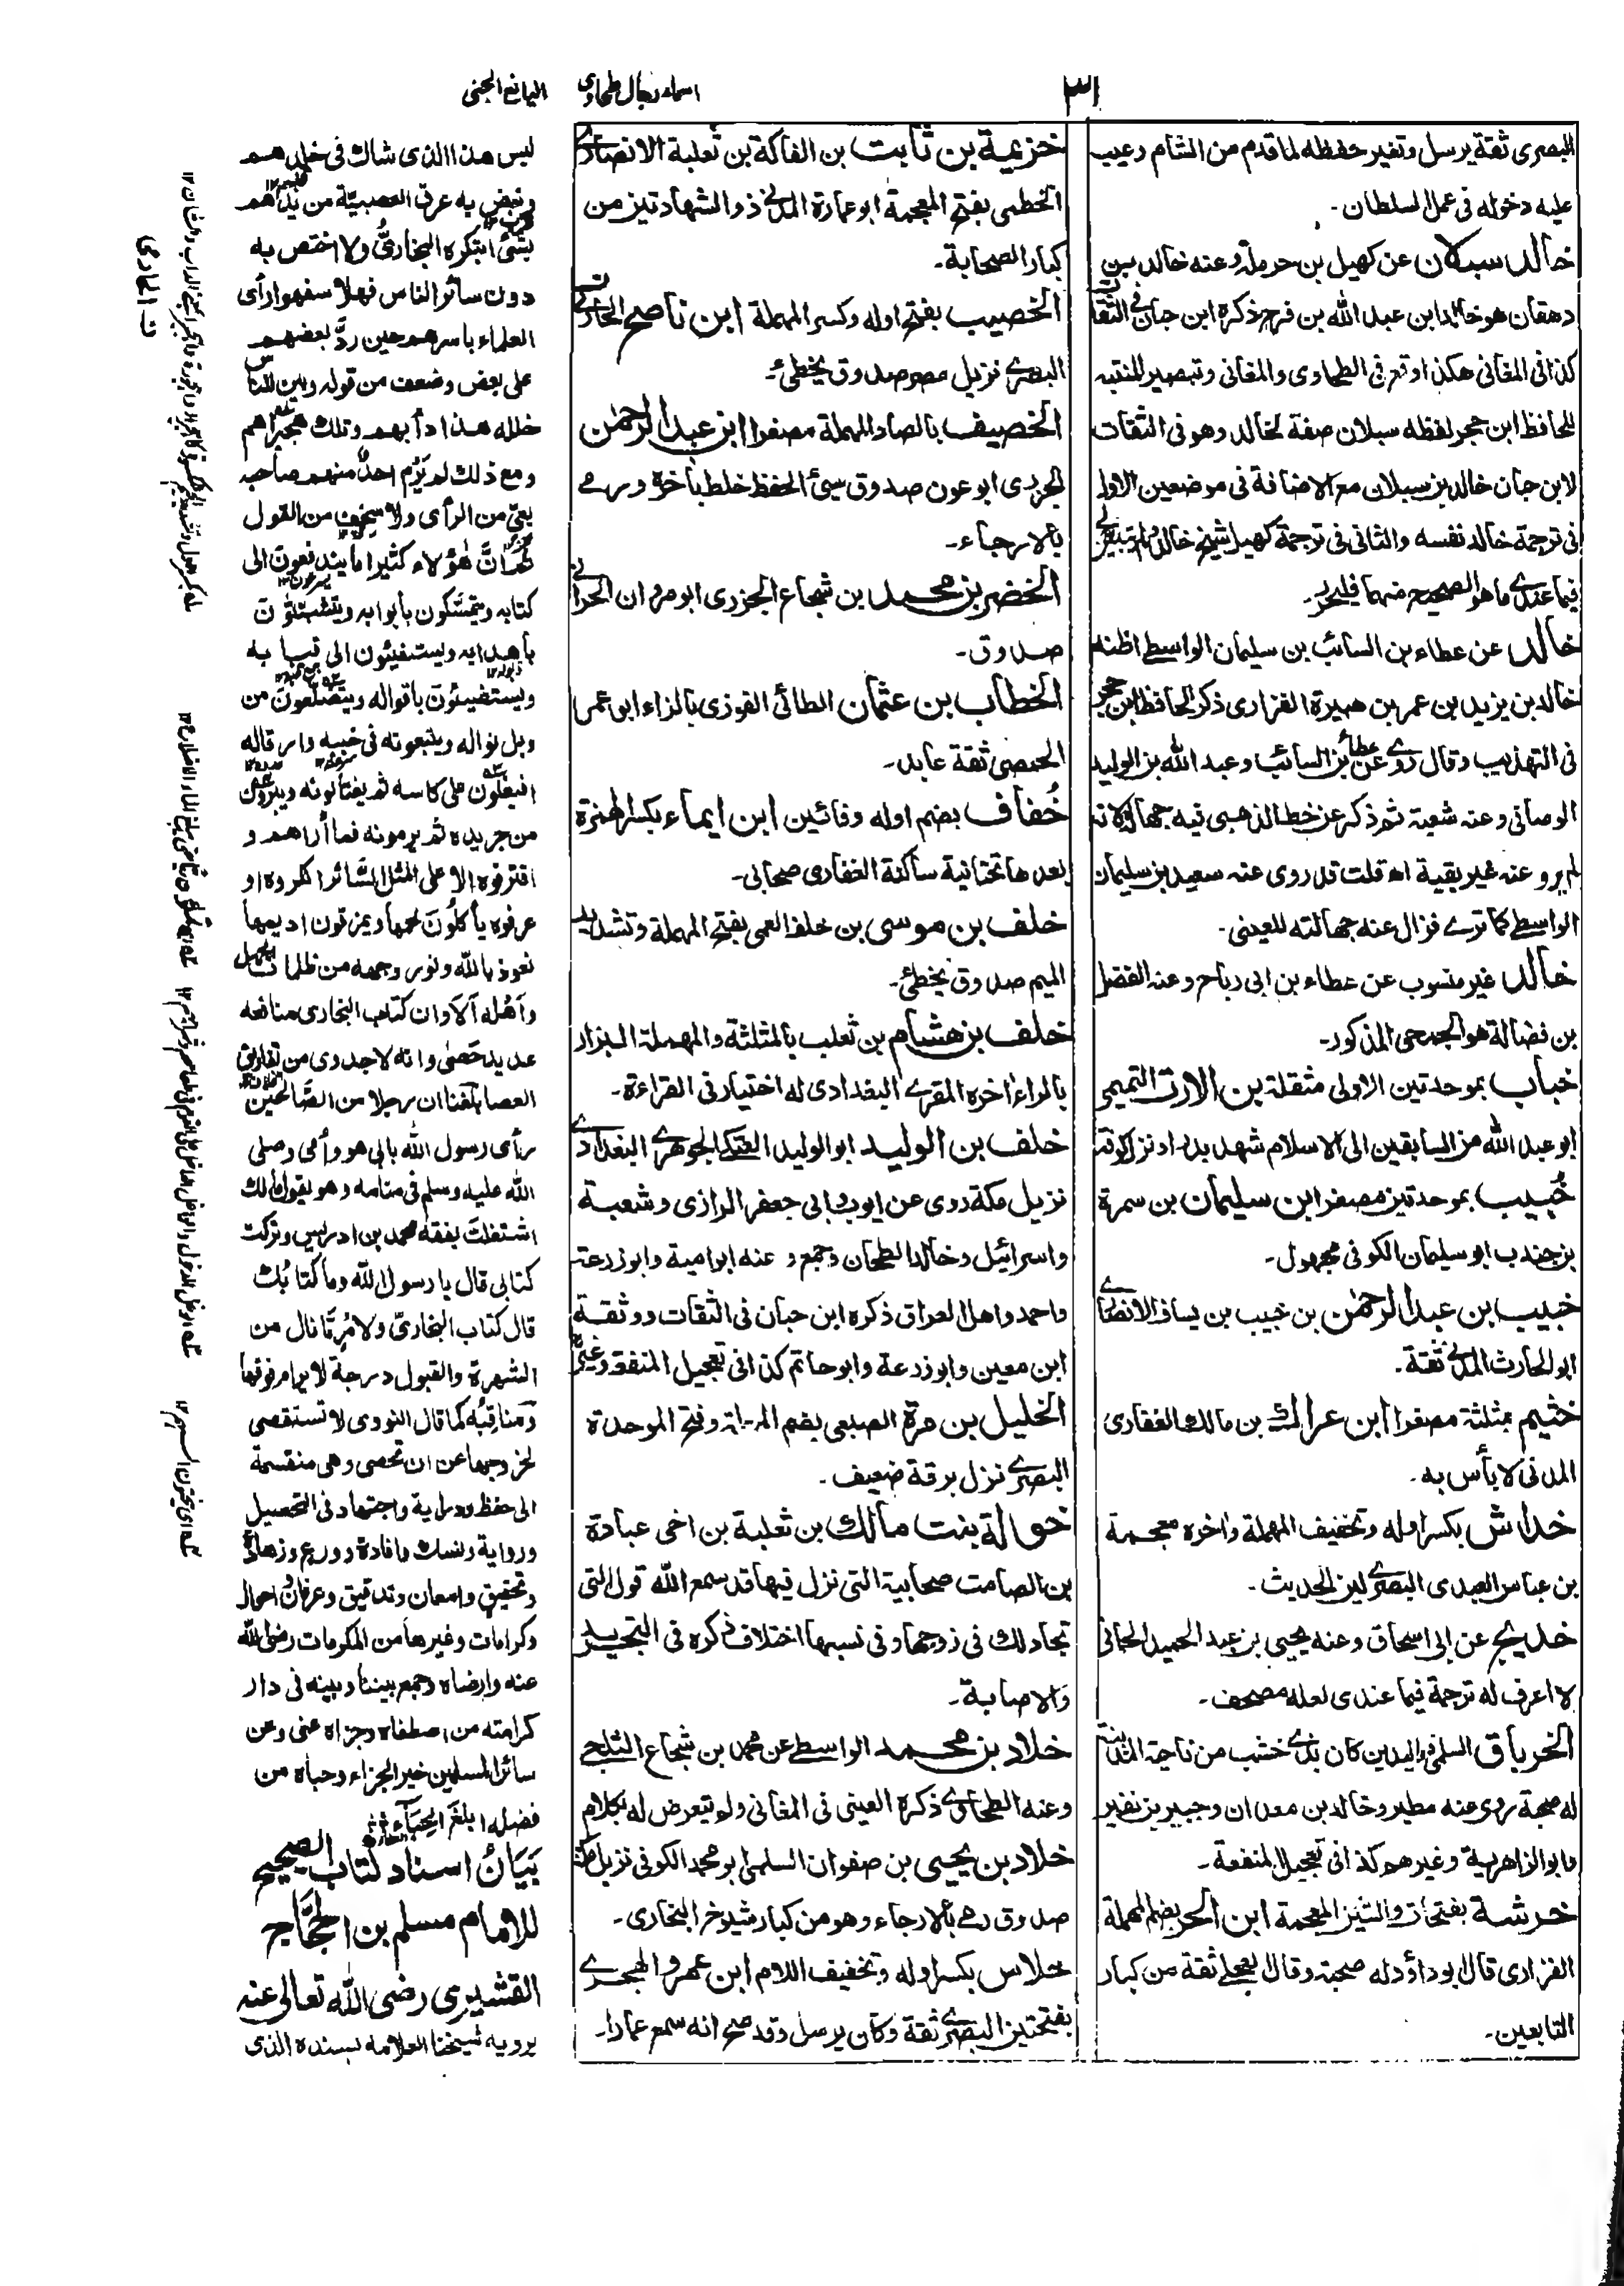 ٣١
اسماء رجال طحاوی
اليانع الجنی
البصری ثقة يرسل وتغير حفظه لما قدم من الشام وعيب
عليه دخوله فی عمل السلطان۔
خالد سبلان عن كهيل بن حرملة وعنه خالد بن
دهقان هو خالد ابن عبد الله بن فرج ذكره ابن حبان فی الثقات
كذا فی المغانی هكذا وقع فی الطحاوی والمغانی وتبصير المنتبه
للحافظ ابن حجر لفظه سبلان صفة لخالد وهو فی الثقات
لابن حبان خالد بن سبلان مع الاضافة فی موضعين الاول
فی ترجمة خالد نفسه والثانی فی ترجمة كهيل شيخ خالد ولم يتبين لی
فيما عندی ما هو الصحيح منهما فليحرر۔
خالد عن عطاء بن السائب بن سليمان الواسطی اظنه
خالد بن يزيد بن عمر بن هبيرة الفزاری ذكر الحافظ ابن حجر
فی التهذيب وقال روی عن عطاء بن السائب وعبد الله بن الوليد
الوصافی وعنه شعبة ثم ذكر عن خط الذهبی فيه جهالة لانه
لم يرو عنه غير بقية اه قلت قد روی عنه سعيد بن سليمان
الواسطی كما ترے فزال عنه جهالته للعينی۔
خالد غير منسوب عن عطاء بن ابی رباح وعنه الفضل
بن فضالة هو الجمحی المذكور۔
خباب بموحدتين الاولى مثقلة بن الارت التميمی
ابو عبد الله من السابقين الى الاسلام شهد بدرا ونزل الكوفة
خُبيب بموحدتين مصغرا بن سليمان بن سمرة
بن جندب ابو سليمان الكوفی مجهول۔
خبيب بن عبد الرحمٰن بن خبيب بن يساف الانصاری
ابو الحارث المدنی ثقة۔
خثيم بمثلثة مصغرا ابن عراك بن مالك الغفاری
المدنی لا بأس به۔
خداش بكسر اوله وتخفيف المهملة واخره معجمة
بن عباس العبدی البصرے لين الحديث۔
خديج عن ابی اسحاق وعنه يحيی بن عبد الحميد الحمانی
لا اعرف له ترجمة فيما عندی لعله مصحف۔
الخرباق السلمی ذو اليدين كان بذی خشب من ناحية المدينة
له صحبة روی عنه مطير وخالد بن معدان وجبير بن نفير
وابو الزاهرية وغيرهم كذا فی تعجيل المنفعة۔
خرشة بفتحات والشين المعجمة ابن الحر بضم المهملة
الفزاری قال ابو داؤد له صحبة وقال العجلی ثقة من كبار
التابعين۔
خزيمة بن ثابت بن الفاكة بن ثعلبة الانصاری
الخطمی بفتح المعجمة ابو عمارة المدنی ذو الشهادتين من
كبار الصحابة۔
الخصيب بفتح اوله وكسر المهملة ابن ناصح الحارثی
البصرے نزيل مصر صدوق يخطئ۔
الخصيف بالصاد المهملة مصغرا ابن عبد الرحمٰن
الجزری ابو عون صدوق سيئ الحفظ خلط باخره ورمی
بالارجاء۔
الخضر بن محمد بن شجاع الجزری ابو مروان الحرانی
صدوق۔
الخطاب بن عثمان الطائی الفوزی بالزاء ابو عمر
الحمصی ثقة عابد۔
خُفاف بضم اوله وفائين ابن ايماء بكسر الهمزة
بعدها تحتانية ساكنة الغفاری صحابی۔
خلف بن موسی بن خلف العمی بفتح المهملة وتشديد
الميم صدوق يخطئ۔
خلف بن هشام بن ثعلب بالمثلثة والمهملة البزار
بالراء اخره المقرے البغدادی له اختيار فی القراءة۔
خلف بن الوليد ابو الوليد العتكی الجوهرے البغدادے
نزيل مكة روی عن ايوب وابی جعفر الرازی وشعبة
واسرائيل وخالد الطحان وجمع وعنه ابو امية وابو زرعة
واحمد واهل العراق ذكره ابن حبان فی الثقات ووثقة
ابن معين وابو زرعة وابو حاتم كذا فی تعجيل المنفعة وغيره
الخليل بن مرة الضبعی بضم المعجمة وفتح الموحدة
البصرے نزل برقة ضعيف۔
خوالة بنت مالك بن ثعلبة بن اخی عبادة
بن الصامت صحابية التی نزل فيها قد سمع الله قول التی
تجادلك فی زوجها وفی نسبها اختلاف ذكره فی التجريد
والاصابة۔
خلاد بن محمد الواسطی عن محمد بن شجاع الثلجی
وعنه الطحاوے ذكره العينی فی المغانی ولم يتعرض له بكلام
خلاد بن يحيی بن صفوان السلمی ابو محمد الكوفی نزيل مكة
صدوق رمی بالارجاء وهو من كبار شيوخ البخاری۔
خلاس بكسر اوله وتخفيف اللام ابن عمرو الهجرے
بفتحتين البصرے ثقة وكان يرسل وقد صح انه سمع عمارا۔
ليس هذا الذی شاك فی خلدهم
ونبض به عرق العصبية من يداهم
بشئ ابتكره البخاریُّ ولا اختص به
دون سائر الناس فهلا سفهوا رأی
العلماء باسرهم حين ردَّ بعضهم
علی بعض وضعف من قوله وبين للناس
خلله هذا دأبهم وتلك هجيراهم
ومع ذلك لم يَرْمِ احدٌ منهم صاحبه
بعيّ من الرأی ولا سخيف من القول
ثم انَّ هٰؤلاء كثيرا ما يندفعون الی
كتابه ويتمسَّكون بأبوابه ويتشبثون
بأهدابه ويستفيئون الی قبابه
ويستضيئون باقواله ويتضلَّعون من
وبل نواله ويتبعونه فی خببه وارقاله
من جريده ثم يرمونه فما أراهم و
اقترفوه الا علی المثل السَّائر اكروه او
عرفوه يأكلُون لحمها ويمزقون اديمها
نعوذ بالله ونور وجهه من ظلمات الجهل
وأهله ألا وان كتاب البخاری منافعه
عديد حَصٰی وانه لاجدوی من تفاريق
العصا بلغنا ان رجلا من الصَّالحين
رأی رسول الله بابی هو وأمی وصلی
الله عليه وسلم فی منامه وهو يقول مالك
اشتغلت بفقه محمد بن ادريس وتركت
كتابی قال يا رسول الله وما كتابُك
قال كتاب البخاریّ ولامْرٍ مَّا نال من
الشهرة والقبول درجة لا يرام فوقها
ومناقبُه كما قال النووی لا تستقصی
لخروجها عن ان تحصی وهی منقسمة
الی حفظ ودراية واجتهاد فی التحصيل
ورواية ونسك وافادة وورع وزهادة
وتحقيق وامعان وتدقيق وعرفان واحوال
وكرامات وغيرها من المكرمات رضی الله
عنه وارضاه وجمع بيننا وبينه فی دار
كرامته من اصطفاه وجزاه عنی وعن
سائر المسلمين خير الجزاء وحباه من
فضله ابلغَ الحِبَاء
بَيَانُ اسناد لكتاب الصحيح
للامام مسلم بن الحجَّاج
القشيری رضی الله تعالی عنه
يرويه شيخنا العلامه بسنده الذی